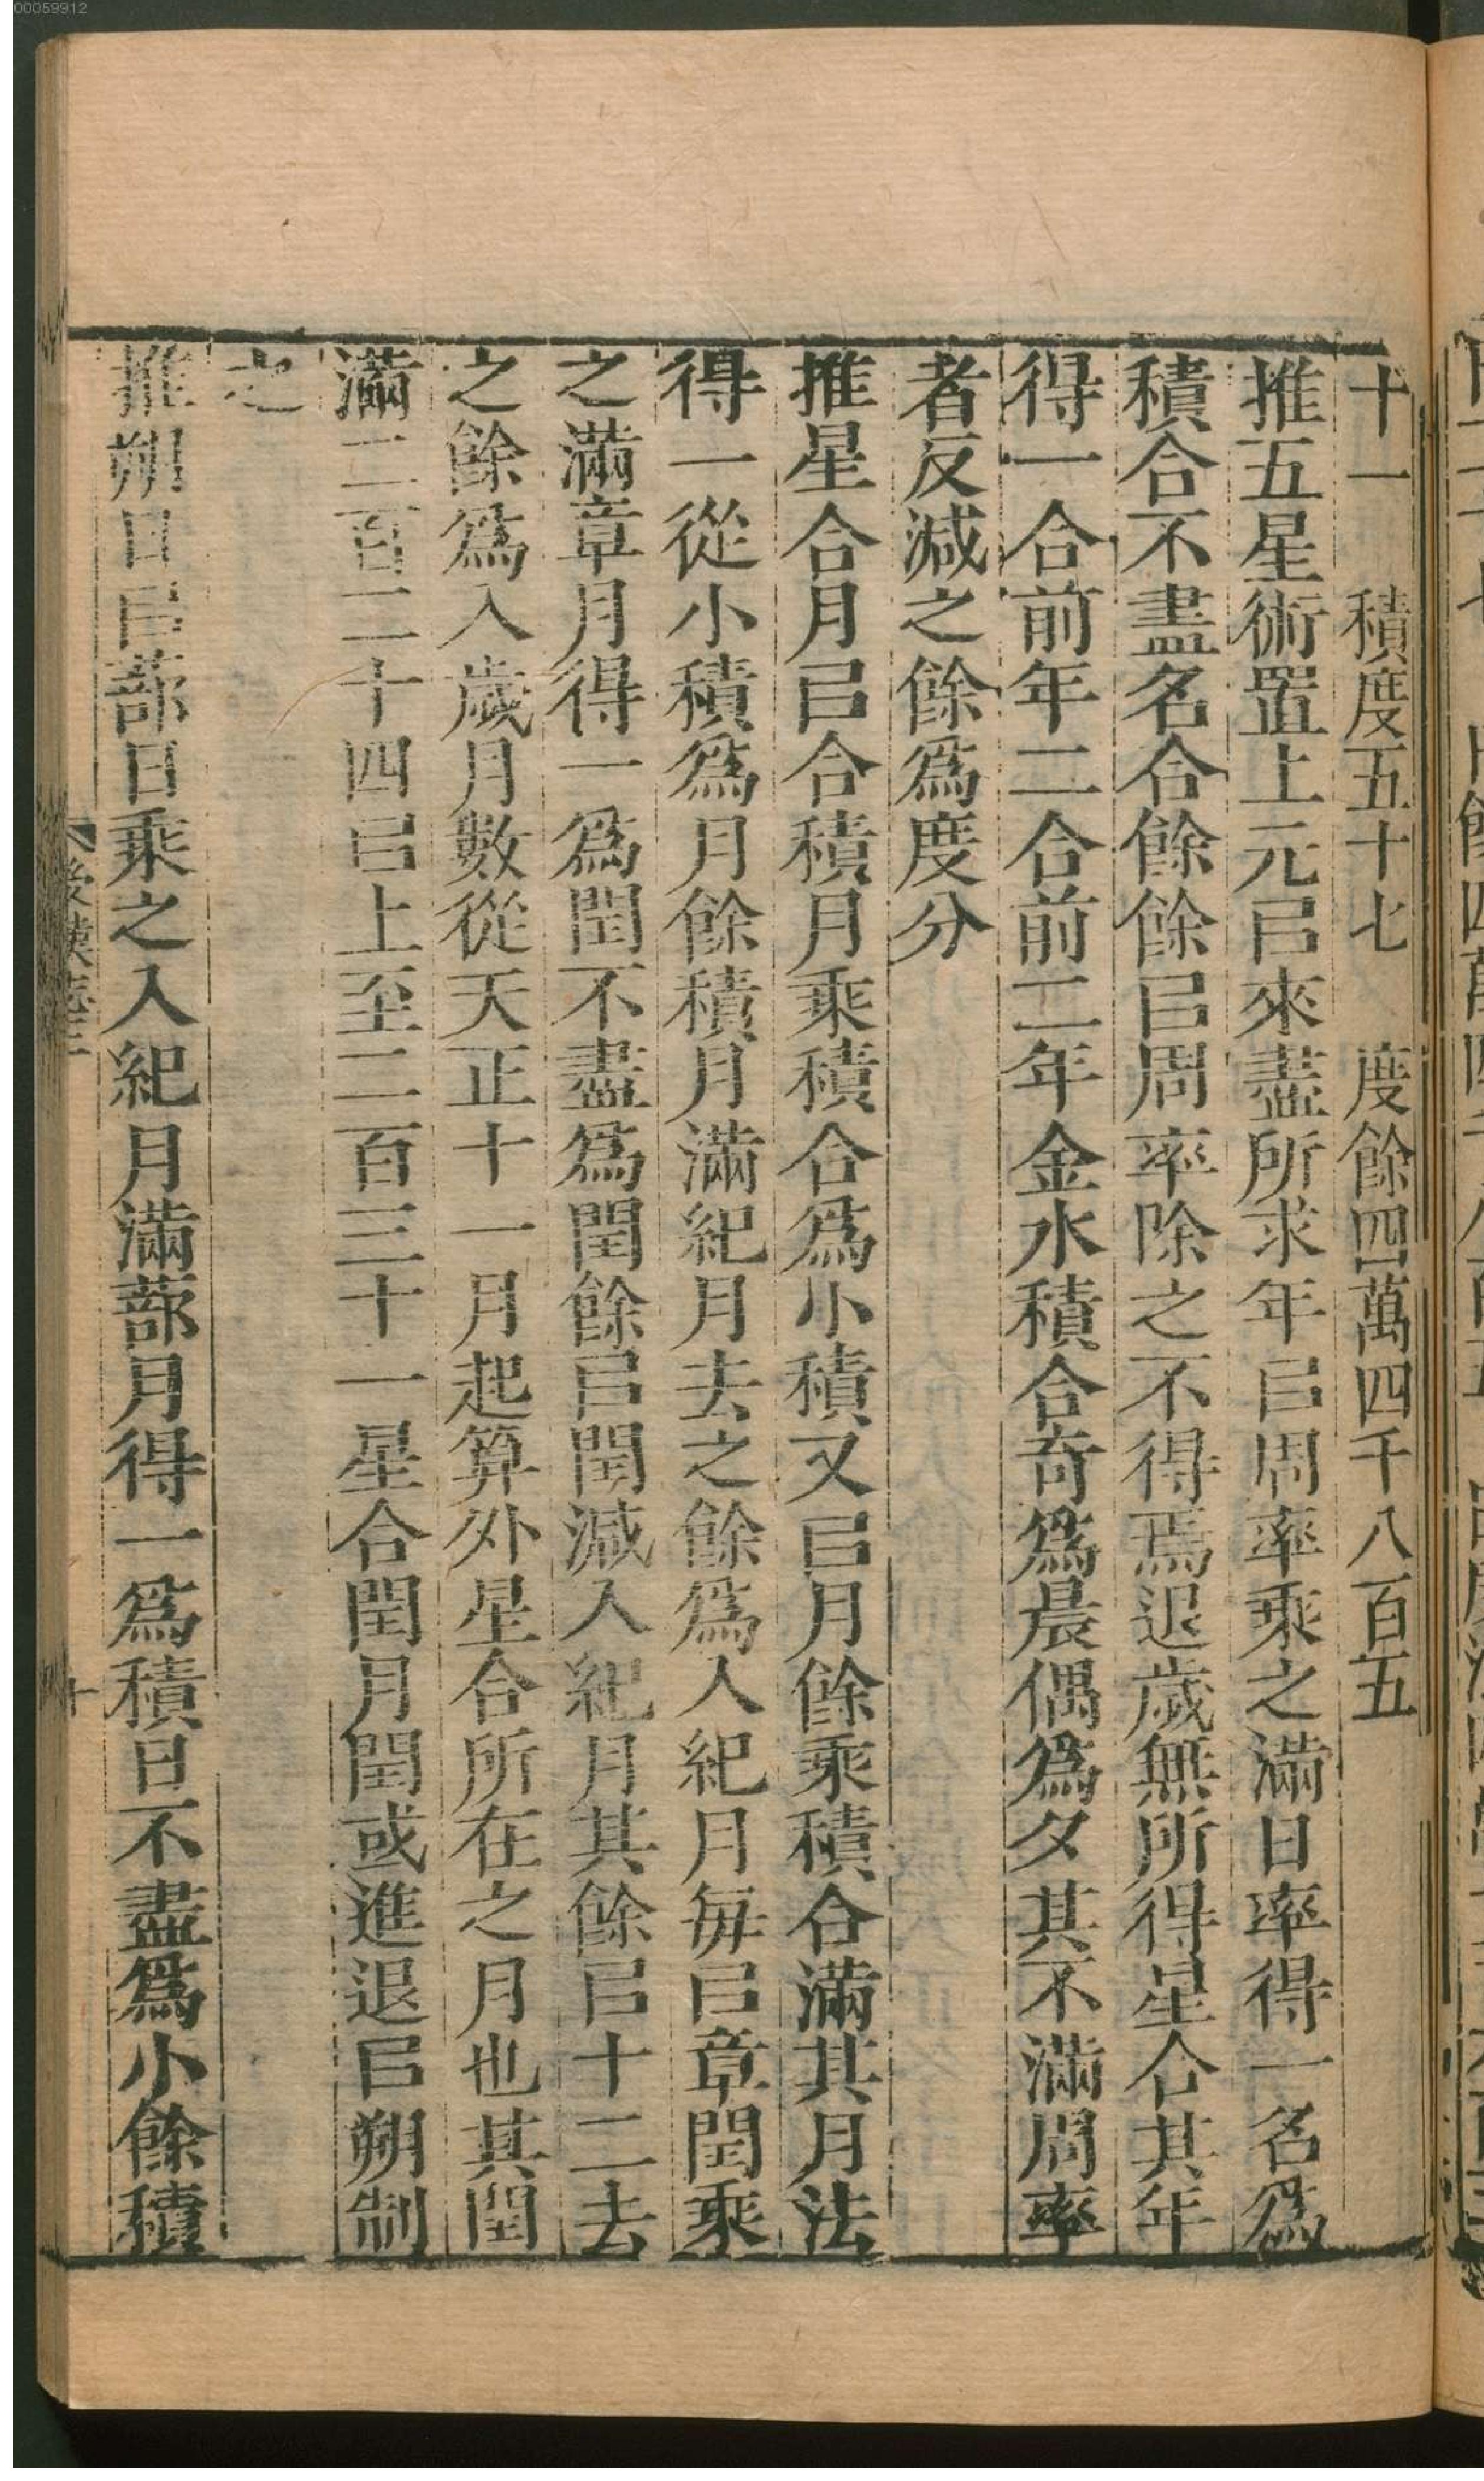 00059912
十一　積度五十七　度餘四萬四千八百五
推五星術置上元㠯來盡所求年㠯周率乘之滿日率得一名爲
積合不盡名合餘餘㠯周率除之不得焉退歲無所得星合其年
得一合前年二合前二年金水積合奇爲晨偶爲夕其不滿周率
者反減之餘爲度分
推星合月㠯合積月乘積合爲小積又㠯月餘乘積合滿其月法
得一從小積爲月餘積月滿紀月去之餘爲入紀月每㠯章閏乘
之滿章月得一爲閏不盡爲閏餘㠯閏減入紀月其餘㠯十二去
之餘爲入歲月數從天正十一月起算外星合所在之月也其閏
滿二百二十四㠯上至二百三十一星合閏月閏或進退㠯朔制
之
推朔日㠯蔀日乘之入紀月滿蔀月得一爲積日不盡爲小餘積
後漢志三
十